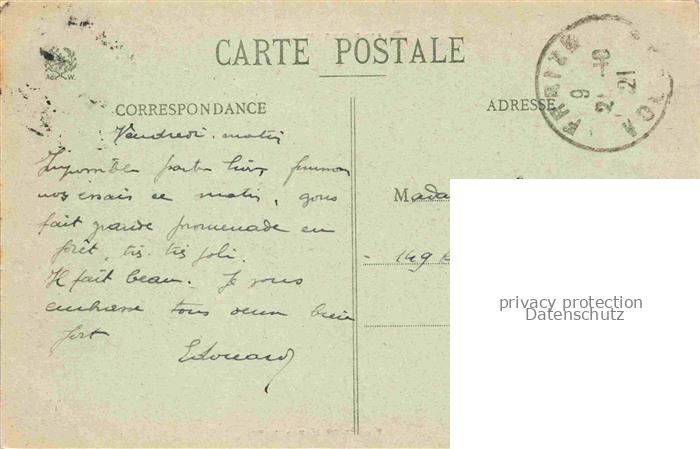 CARTE POSTALE
CORRESPONDANCE
ADRESSE
Vendredi matin
Impossible partir hier finirons
nos essais ce matin, avons
fait grande promenade en
forêt, très très joli.
Il fait beau. Je vous
embrasse tous deux bien
fort
Edouard
Mada
149
PARIS
9
21
privacy protection
Datenschutz